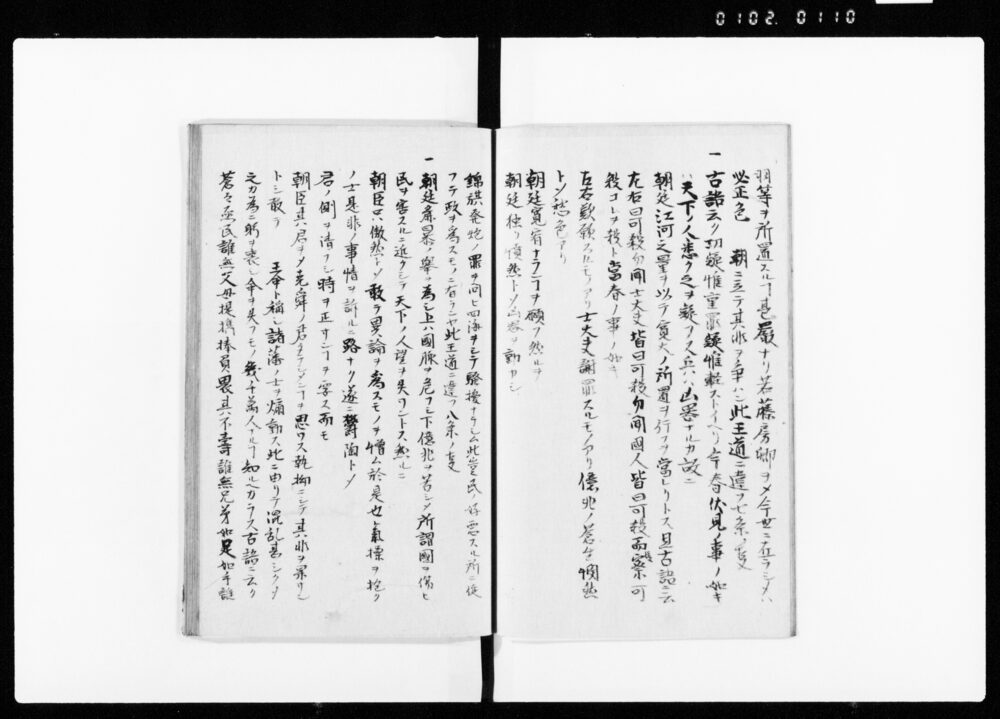 0102.0110
羽等ヲ所置スルヿ甚嚴ナリ若藤房卿ヲメ今世ニ在ラシメハ
必正色 朝ニ立テ其非ヲ争ハン此王道ニ違フ七条ノ
一 古語云ク功疑惟重罪疑惟軽ストイヘリ今春伏見ノ事ノ如キ
ハ天下ノ人悉ク之ヲ疑フ又兵ハ凶器ナルカ故ニ
朝廷江河之量ヲ以テ寛大ノ所置ヲ行フヲ當レリトス且古語ニ云
左右曰可殺勿聞士大夫皆曰可殺勿聞國人皆曰可殺而察示可
殺コレヲ殺ト當春ノ事ノ如キ
左右歎願スルモノアリ士大夫謝罪スルモノアリ億兆ノ蒼生憫然
トシ愁色アリ
朝廷寛宥ナランヿヲ願フ然ルヲ
朝廷独リ憤然トシ
錦旗発炮ノ罪ヲ問ヒ四海ヲシテ騒擾ナラシム此豈民ノ好悪スル所ニ従
フテ政ヲ為スモノニ有ランヤ此王道ニ違フ八条ノ
一 朝廷暴ノ挙ヲ為シ上ハ國脈ヲ危フシ下億兆ヲ苦シメ所謂國ヲ傷ヒ
民ヲ害スルニ近クシテ天下ノ人望ヲ失ワントス然ルニ
朝臣只傲然トシ敢テ異論ヲ為スモノヲ憎ム於是也氣操ヲ抱ク
ノ士是非ノ事情ヲ訴ルニ路ナク遂ニ欝陶トメ
君ノ側ヲ清フシ時ヲ正サンヿヲ要ス而モ
朝臣其君ヲメ堯舜ノ君タラシメンヿヲ思ワス執拗ニシテ其非ヲ罪セ
トシ敢テ 王命ト稱シ諸藩ノ士ヲ煽動ス此ニ由リテ混乱甚シクメ
之カ為ニ躬ヲ喪シ命ヲ失フモノ幾千萬人ナルヿ知ルヘカラス古語ニ云ク
蒼々烝民誰無父母提携捧負畏其不壽誰無兄弟如足如手誰